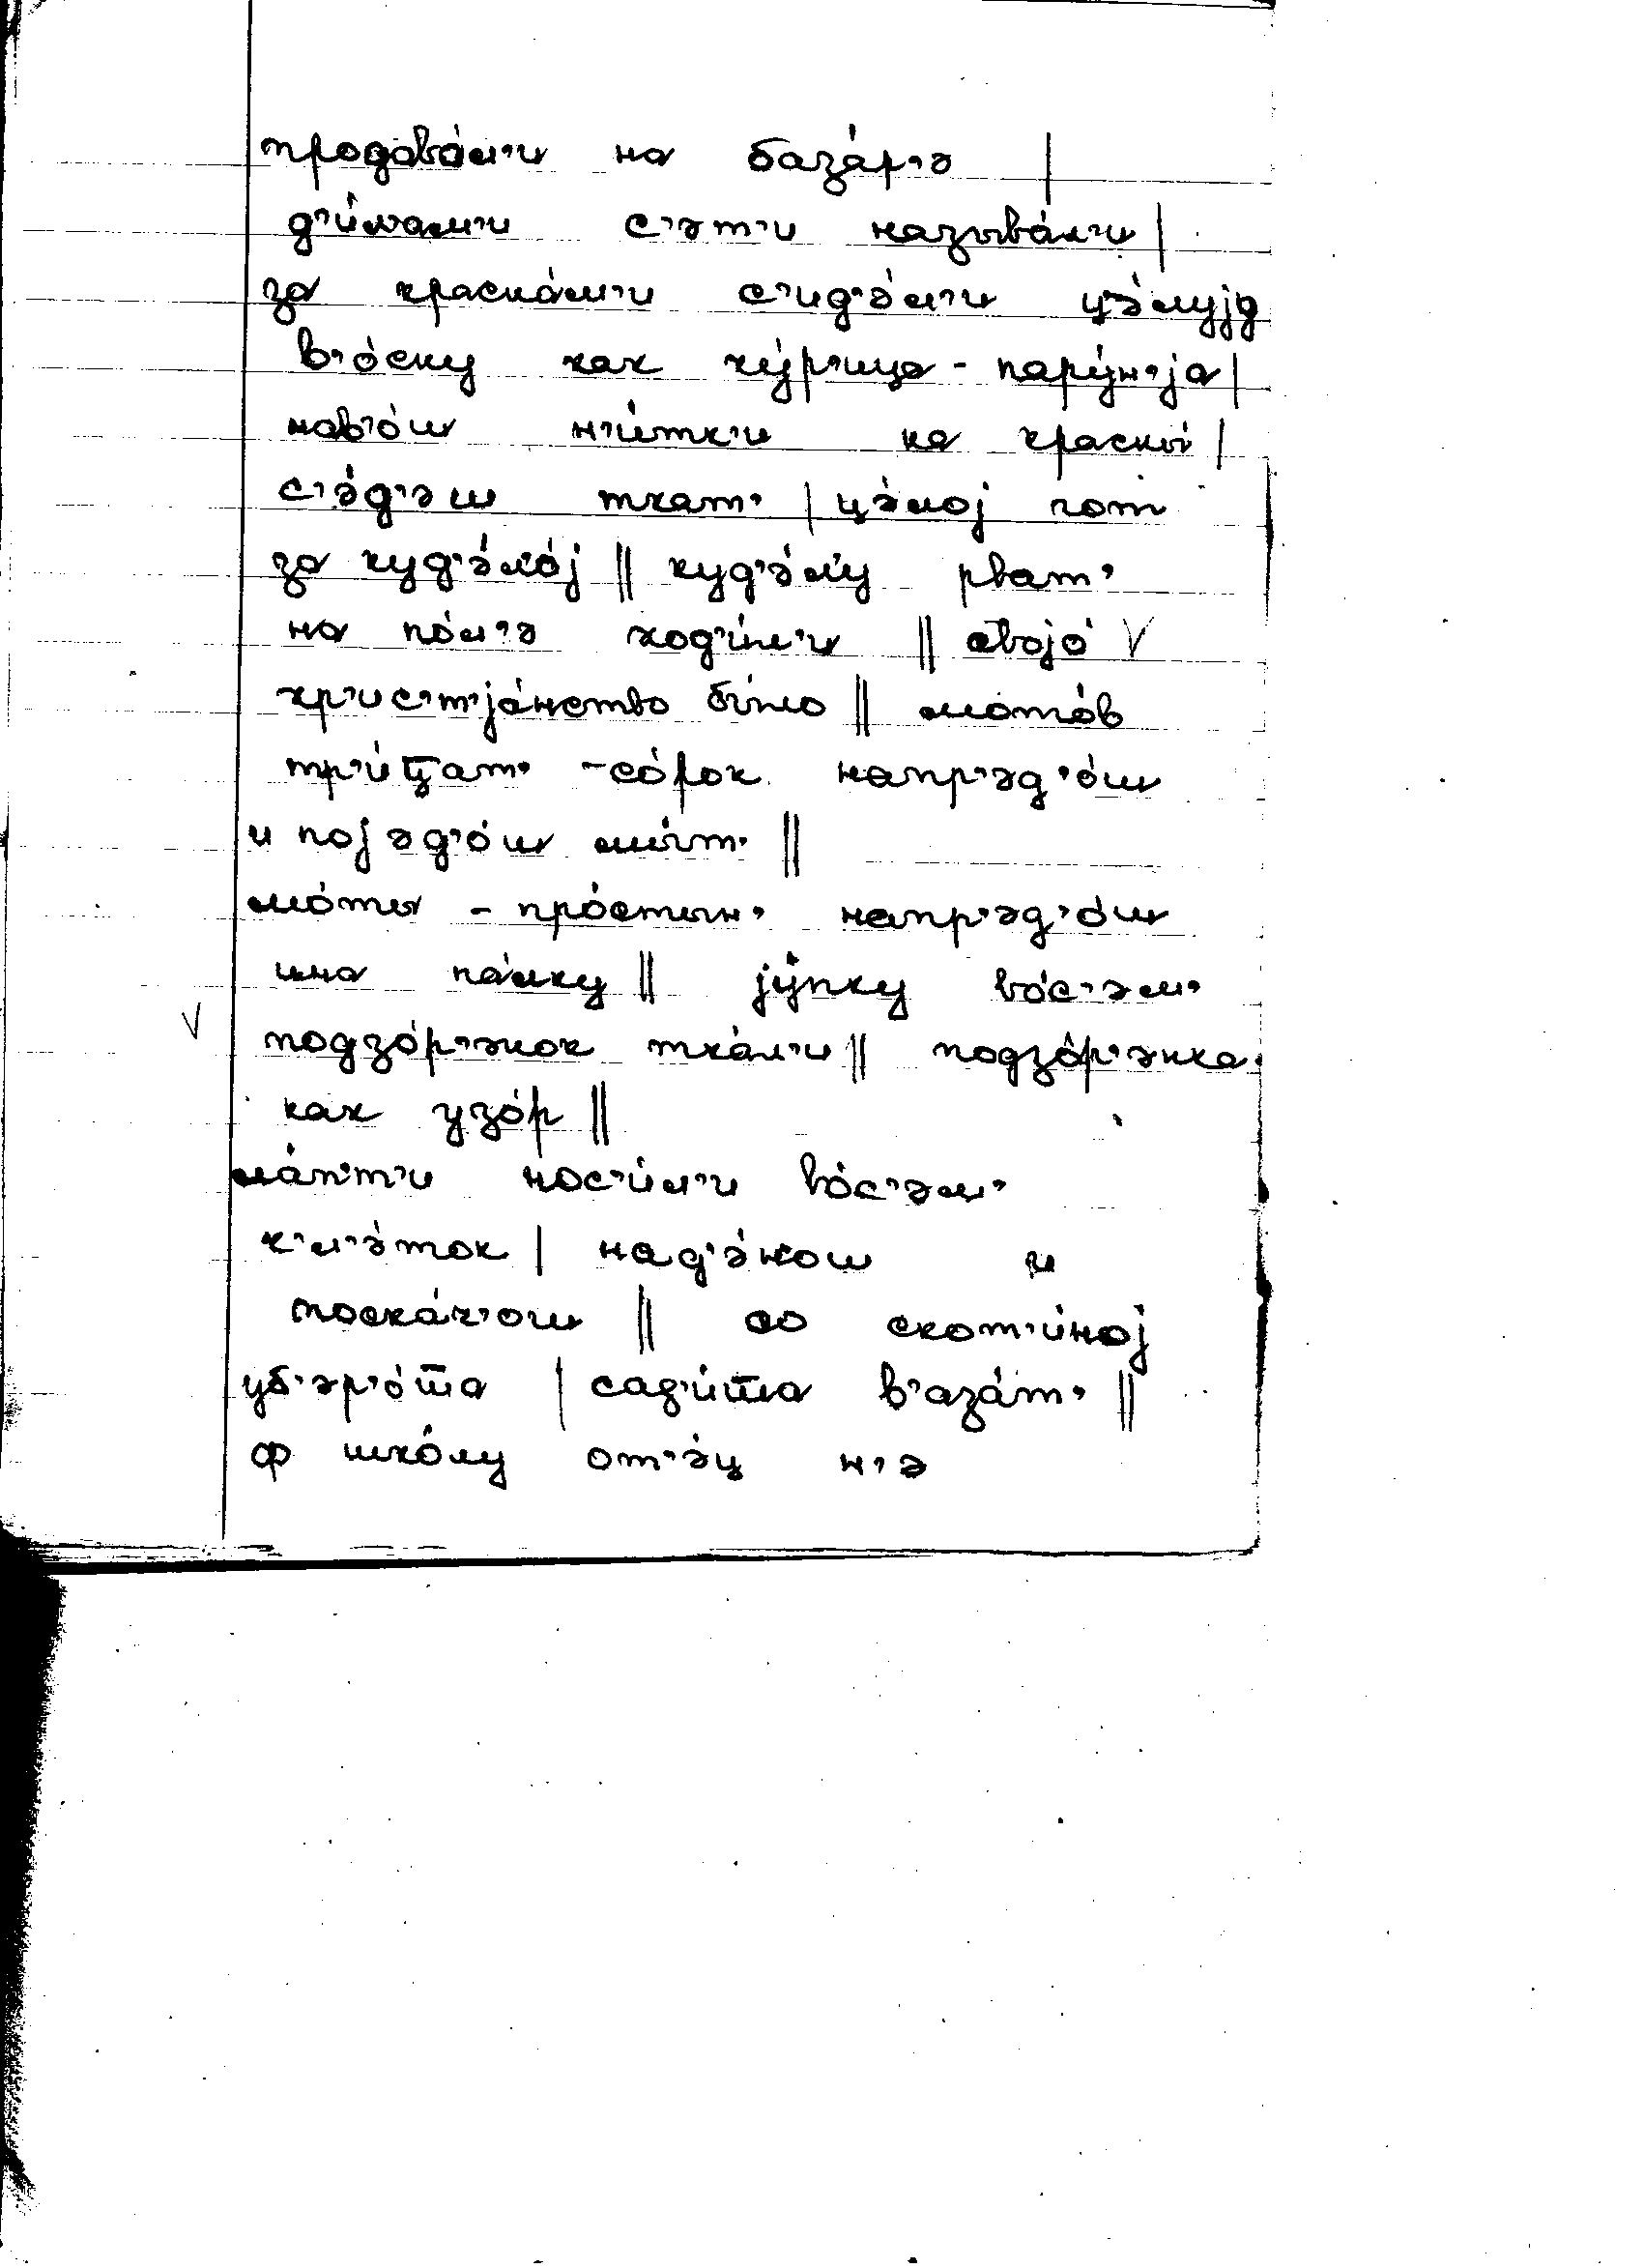 продава́л'и на база́р'э |
д'и́мам'и с'э́т'и называ́л'и |
за красна́м'и с'ид'э́л'и цэ́лујд
в'о́сну как ку́р'ица - пару́н'ја |
нав'о́ш н'и́тк'и на красны́ |
с'э́д'эш ткат' | цэ́лој гот
за куд'э́л'о́ј || куд'э́л'у рват'
на по́л'э ход'и́л'и || својо́ V
хр'ис'т'ја́нство бы́ло || мото́в
тр'и́ц̄ат' - со́рок напр'эд'о́ш
и пој эд'о́ш мыт' ||
мо́ты - про́стын' напр'эд'о́ш
ина па́лку || јýпку во́с'эм'
V подзо́р'энок тка́л'и || подзо́р'энка
как узо́р ||
ла́п'т'и нос'и́л'и во́с'эм'
к'л'э́ток | над'э́н'ош и
поска́ч'ош || со скот'и́ној
уб'эр'о́т̄ца | сад'и́т̄ца в'аза́т' ||
ф шко́лу от'э́ц н'э